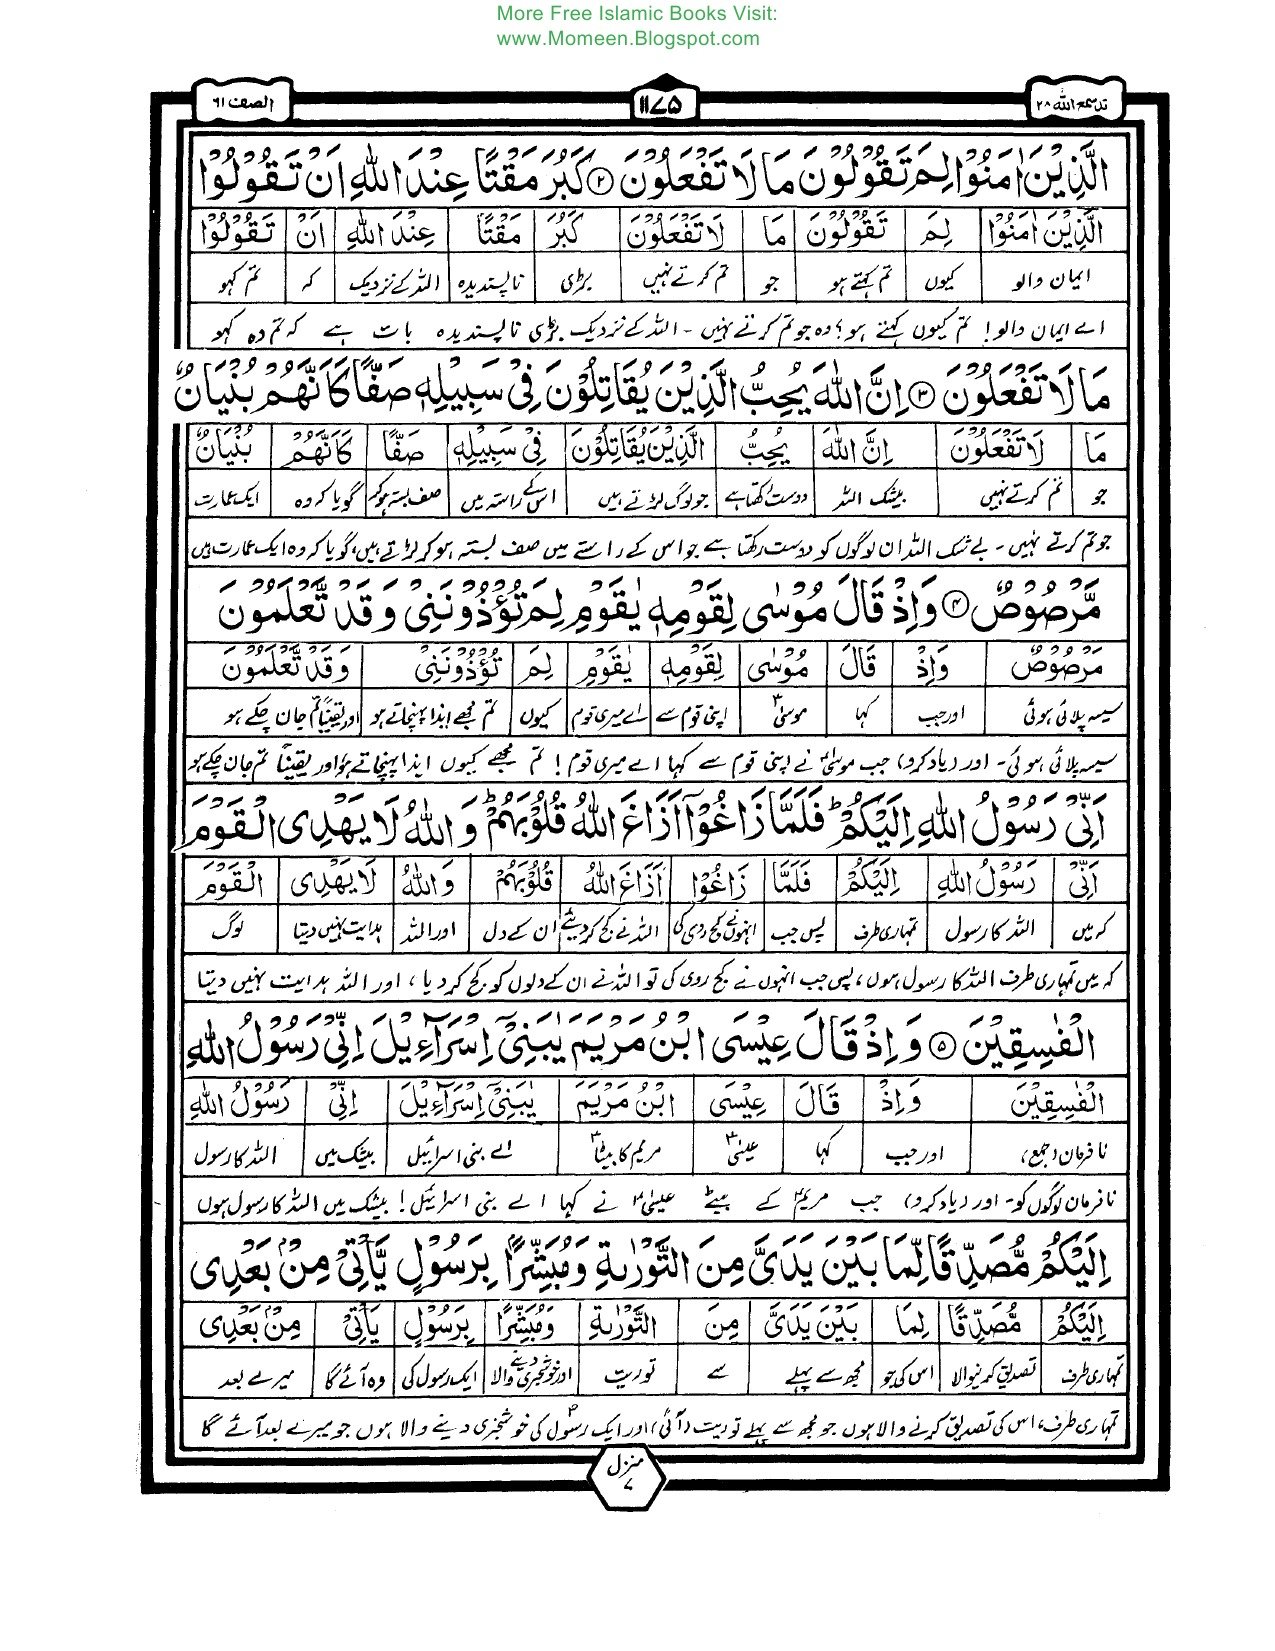 More Free Islamic Books Visit:
www.Momeen.Blogspot.com
قد سمع الله ۲۸ ۱۱۷۵ الصف ۶۱
الَّذِيْنَ اٰمَنُوْا لِمَ تَقُوْلُوْنَ مَا لَا تَفْعَلُوْنَ ۲ كَبُرَ مَقْتًا عِنْدَ اللّٰهِ اَنْ تَقُوْلُوْا
الَّذِيْنَ اٰمَنُوْا لِمَ تَقُوْلُوْنَ مَا لَا تَفْعَلُوْنَ كَبُرَ مَقْتًا عِنْدَ اللّٰهِ اَنْ تَقُوْلُوْا
ایمان والو کیوں تم کہتے ہو جو تم کرتے نہیں بڑی ناپسندیدہ اللہ کے نزدیک کہ تم کہو
اے ایمان والو! تم کیوں کہتے ہو؟ وہ جو تم کرتے نہیں - اللہ کے نزدیک بڑی ناپسندیدہ بات ہے کہ تم وہ کہو
مَا لَا تَفْعَلُوْنَ ۳ اِنَّ اللّٰهَ يُحِبُّ الَّذِيْنَ يُقَاتِلُوْنَ فِيْ سَبِيْلِهٖ صَفًّا كَاَنَّهُمْ بُنْيَانٌ
مَا لَا تَفْعَلُوْنَ اِنَّ اللّٰهَ يُحِبُّ الَّذِيْنَ يُقَاتِلُوْنَ فِيْ سَبِيْلِهٖ صَفًّا كَاَنَّهُمْ بُنْيَانٌ
جو تم کرتے نہیں بیشک اللہ دوست رکھتا ہے جو لوگ لڑتے ہیں اس کے راستہ میں صف بستہ ہو کر گویا کہ وہ ایک عمارت
جو تم کرتے نہیں - بے شک اللہ ان لوگوں کو دوست رکھتا ہے جو اس کے راستے میں صف بستہ ہو کر لڑتے ہیں، گویا کہ وہ ایک عمارت ہیں
مَّرْصُوْصٌ ۴ وَاِذْ قَالَ مُوْسٰى لِقَوْمِهٖ يٰقَوْمِ لِمَ تُؤْذُوْنَنِيْ وَقَدْ تَّعْلَمُوْنَ
مَرْصُوْصٌ وَاِذْ قَالَ مُوْسٰى لِقَوْمِهٖ يٰقَوْمِ لِمَ تُؤْذُوْنَنِيْ وَقَدْ تَّعْلَمُوْنَ
سیسہ پلائی ہوئی اور جب کہا موسیٰؑ اپنی قوم سے اے میری قوم کیوں تم مجھے ایذا پہنچاتے ہو اور یقیناً تم جان چکے ہو
سیسہ پلائی ہوئی - اور (یاد کرو) جب موسیٰؑ نے اپنی قوم سے کہا اے میری قوم! تم مجھے کیوں ایذا پہنچاتے ہو؟ اور یقیناً تم جان چکے ہو
اَنِّيْ رَسُوْلُ اللّٰهِ اِلَيْكُمْ ؕ فَلَمَّا زَاغُوْٓا اَزَاغَ اللّٰهُ قُلُوْبَهُمْ ؕ وَاللّٰهُ لَا يَهْدِى الْقَوْمَ
اَنِّيْ رَسُوْلُ اللّٰهِ اِلَيْكُمْ فَلَمَّا زَاغُوْا اَزَاغَ اللّٰهُ قُلُوْبَهُمْ وَاللّٰهُ لَا يَهْدِى الْقَوْمَ
کہ میں اللہ کا رسول تمہاری طرف پس جب انہوں نے کج روی کی اللہ نے کج کر دیئے ان کے دل اور اللہ ہدایت نہیں دیتا لوگ
کہ میں تمہاری طرف اللہ کا رسول ہوں، پس جب انہوں نے کج روی کی تو اللہ نے ان کے دلوں کو کج کر دیا، اور اللہ ہدایت نہیں دیتا
الْفٰسِقِيْنَ ۵ وَاِذْ قَالَ عِيْسَى ابْنُ مَرْيَمَ يٰبَنِيْٓ اِسْرَآءِيْلَ اِنِّيْ رَسُوْلُ اللّٰهِ
الْفٰسِقِيْنَ وَاِذْ قَالَ عِيْسَى ابْنُ مَرْيَمَ يٰبَنِيْٓ اِسْرَآءِيْلَ اِنِّيْ رَسُوْلُ اللّٰهِ
نافرمان (جمع) اور جب کہا عیسیٰؑ مریم کا بیٹاؑ اے بنی اسرائیل بیشک میں اللہ کا رسول
نافرمان لوگوں کو - اور (یاد کرو) جب مریمؑ کے بیٹے عیسیٰؑ نے کہا اے بنی اسرائیل! بیشک میں اللہ کا رسول ہوں
اِلَيْكُمْ مُّصَدِّقًا لِّمَا بَيْنَ يَدَيَّ مِنَ التَّوْرٰىةِ وَمُبَشِّرًۢا بِرَسُوْلٍ يَّاْتِيْ مِنْۢ بَعْدِى
اِلَيْكُمْ مُّصَدِّقًا لِمَا بَيْنَ يَدَيَّ مِنَ التَّوْرٰىةِ وَمُبَشِّرًا بِرَسُوْلٍ يَاْتِيْ مِنْۢ بَعْدِى
تمہاری طرف تصدیق کرنیوالا اس کی جو مجھ سے پہلے سے توریت اور خوشخبری دینے والا ایک رسول کی وہ آئے گا میرے بعد
تمہاری طرف، اس کی تصدیق کرنے والا ہوں جو مجھ سے پہلے توریت (آئی) اور ایک رسولؐ کی خوشخبری دینے والا ہوں جو میرے بعد آئے گا
منزل
۷